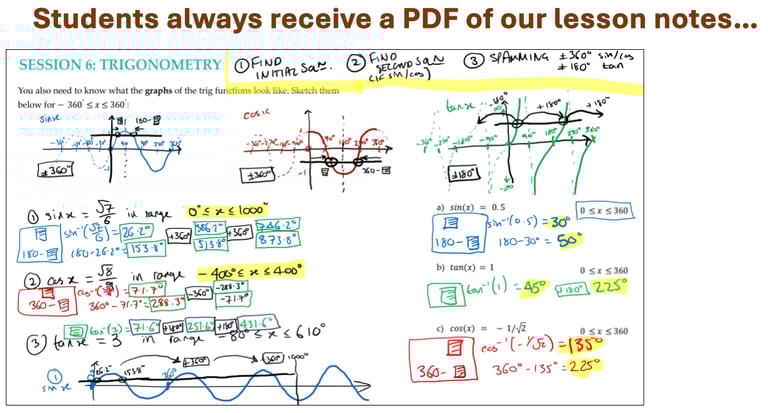 Students always receive a PDF of our lesson notes...
SESSION 6: TRIGONOMETRY
① FIND INITIAL SOLN.
② FIND SECOND SOLN (IF SIN/COS)
③ SPAMMING ±360° sin/cos
±180° tan
You also need to know what the graphs of the trig functions look like. Sketch them
below for − 360° ≤ x ≤ 360°:
sinx
±360°
cosx
±360°
tanx
-180°
+180°
+180°
±180°
① sinx = √7/6 in range 0° ≤ x ≤ 1000°
sin⁻¹(√7/6) = 26.2° +360° 386.2° +360° 746.2°
180- 180-26.2° = 153.8° 513.8° 873.8°
② cosx = √8/9 in range -400° ≤ x ≤ 400°
= 71.7° -360° -288.3°
360- 360°-71.7° = 288.3° -71.7°
tan⁻¹(3) = 71.6° +180° 251.6° +180° 431.6°
③ tanx = 3 in range -80° ≤ x ≤ 610°
① sinx
26.2° 153.8° 360° +360° +360° 1000°
a) sin(x) = 0.5 0 ≤ x ≤ 360
sin⁻¹(0.5) = 30°
180- 180-30° = 50°
b) tan(x) = 1 0 ≤ x ≤ 360
tan⁻¹(1) = 45° +180° 225°
c) cos(x) = − 1/√2 0 ≤ x ≤ 360
cos⁻¹(-1/√2) = 135°
360- 360°-135° = 225°